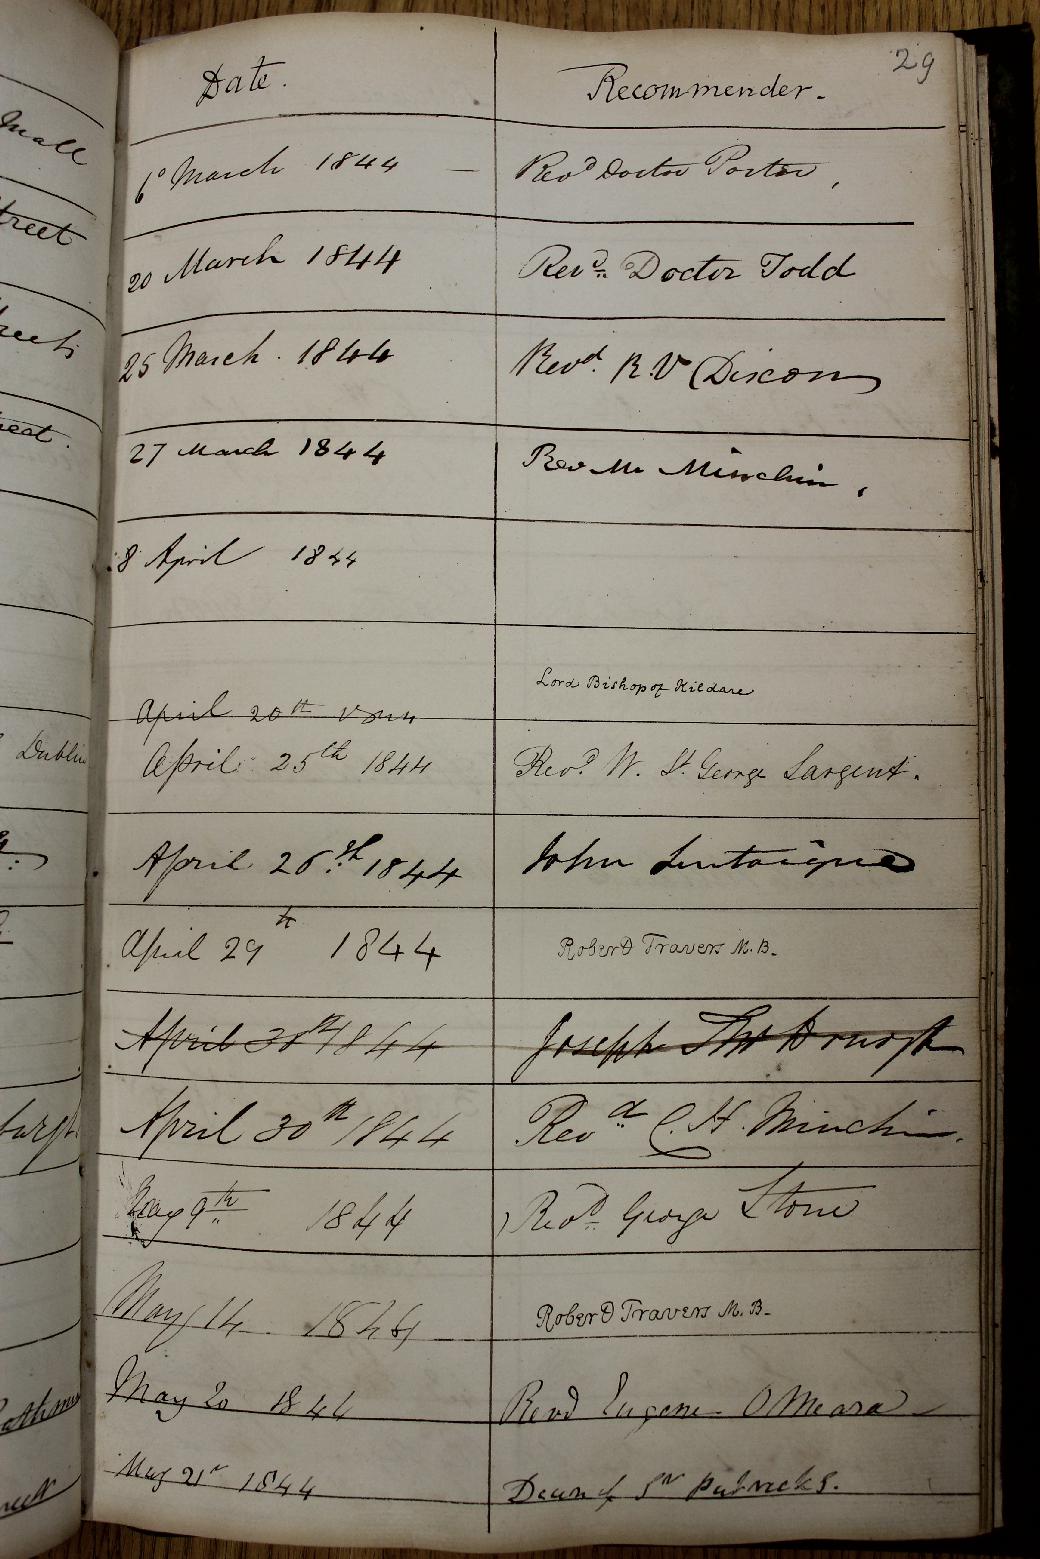 29
Date. Recommender.
6o March 1844 — Revd Doctor Porter,
20 March 1844 Revd. Doctor Todd
25 March. 1844 Revd. R. V Dixon
27 March 1844 Rev Mr Minchin,
8 April 1844
Lord Bishop of Kildare
April 20th 1844
April 25th 1844 Revd. W. St. George Sargent.
April 26th 1844 John Lentaigne
April 29th 1844 Robert Travers M.B.
April 30th 1844 Joseph
April 30th 1844 Revd C. H. Minchin.
May 9th 1844 Revd George Stone
May 14 1844 Robert Travers M.B.
May 20 1844 Revd Eugene O Meara
May 21st 1844 Dean of St Patricks.
Mall
treet
reet
Dublin